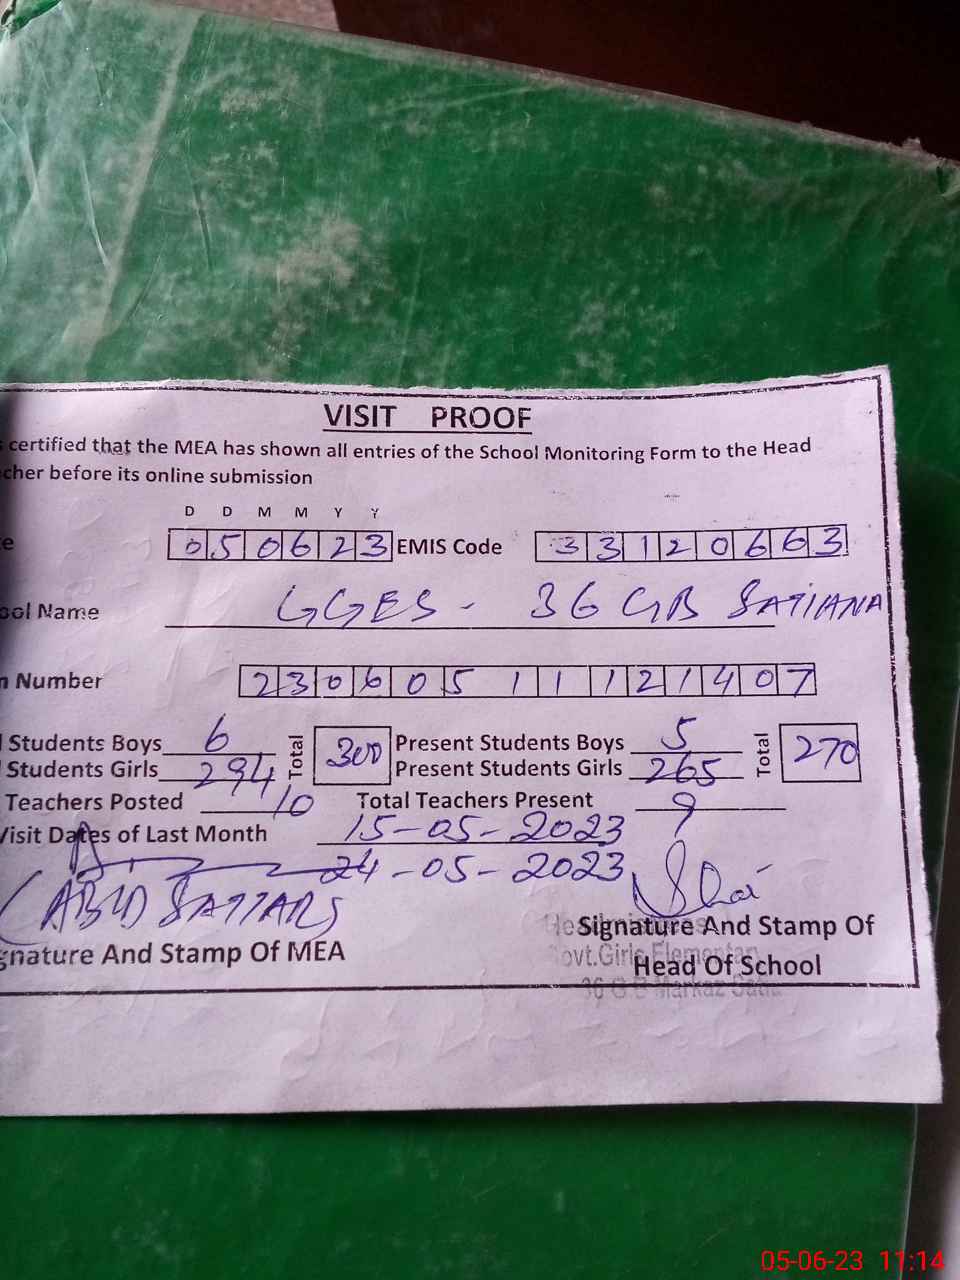 VISIT PROOF
certified that the MEA has shown all entries of the School Monitoring Form to the Head
cher before its online submission
D D M M Y Y
e 050623 EMIS Code 33120663
ool Name GGES - 36 GB SATIANA
n Number 23060511121407
Students Boys 6 Total 300 Present Students Boys 5 Total 270
Students Girls 294 Present Students Girls 265
Teachers Posted 10 Total Teachers Present 9
Visit Dates of Last Month 15-05-2023
24-05-2023
(ABID SATTAR)
gnature And Stamp Of MEA
Signature And Stamp Of
Head Of School
Headmistress
Govt.Girls Elementary
36 G B Markaz
05-06-23 11:14